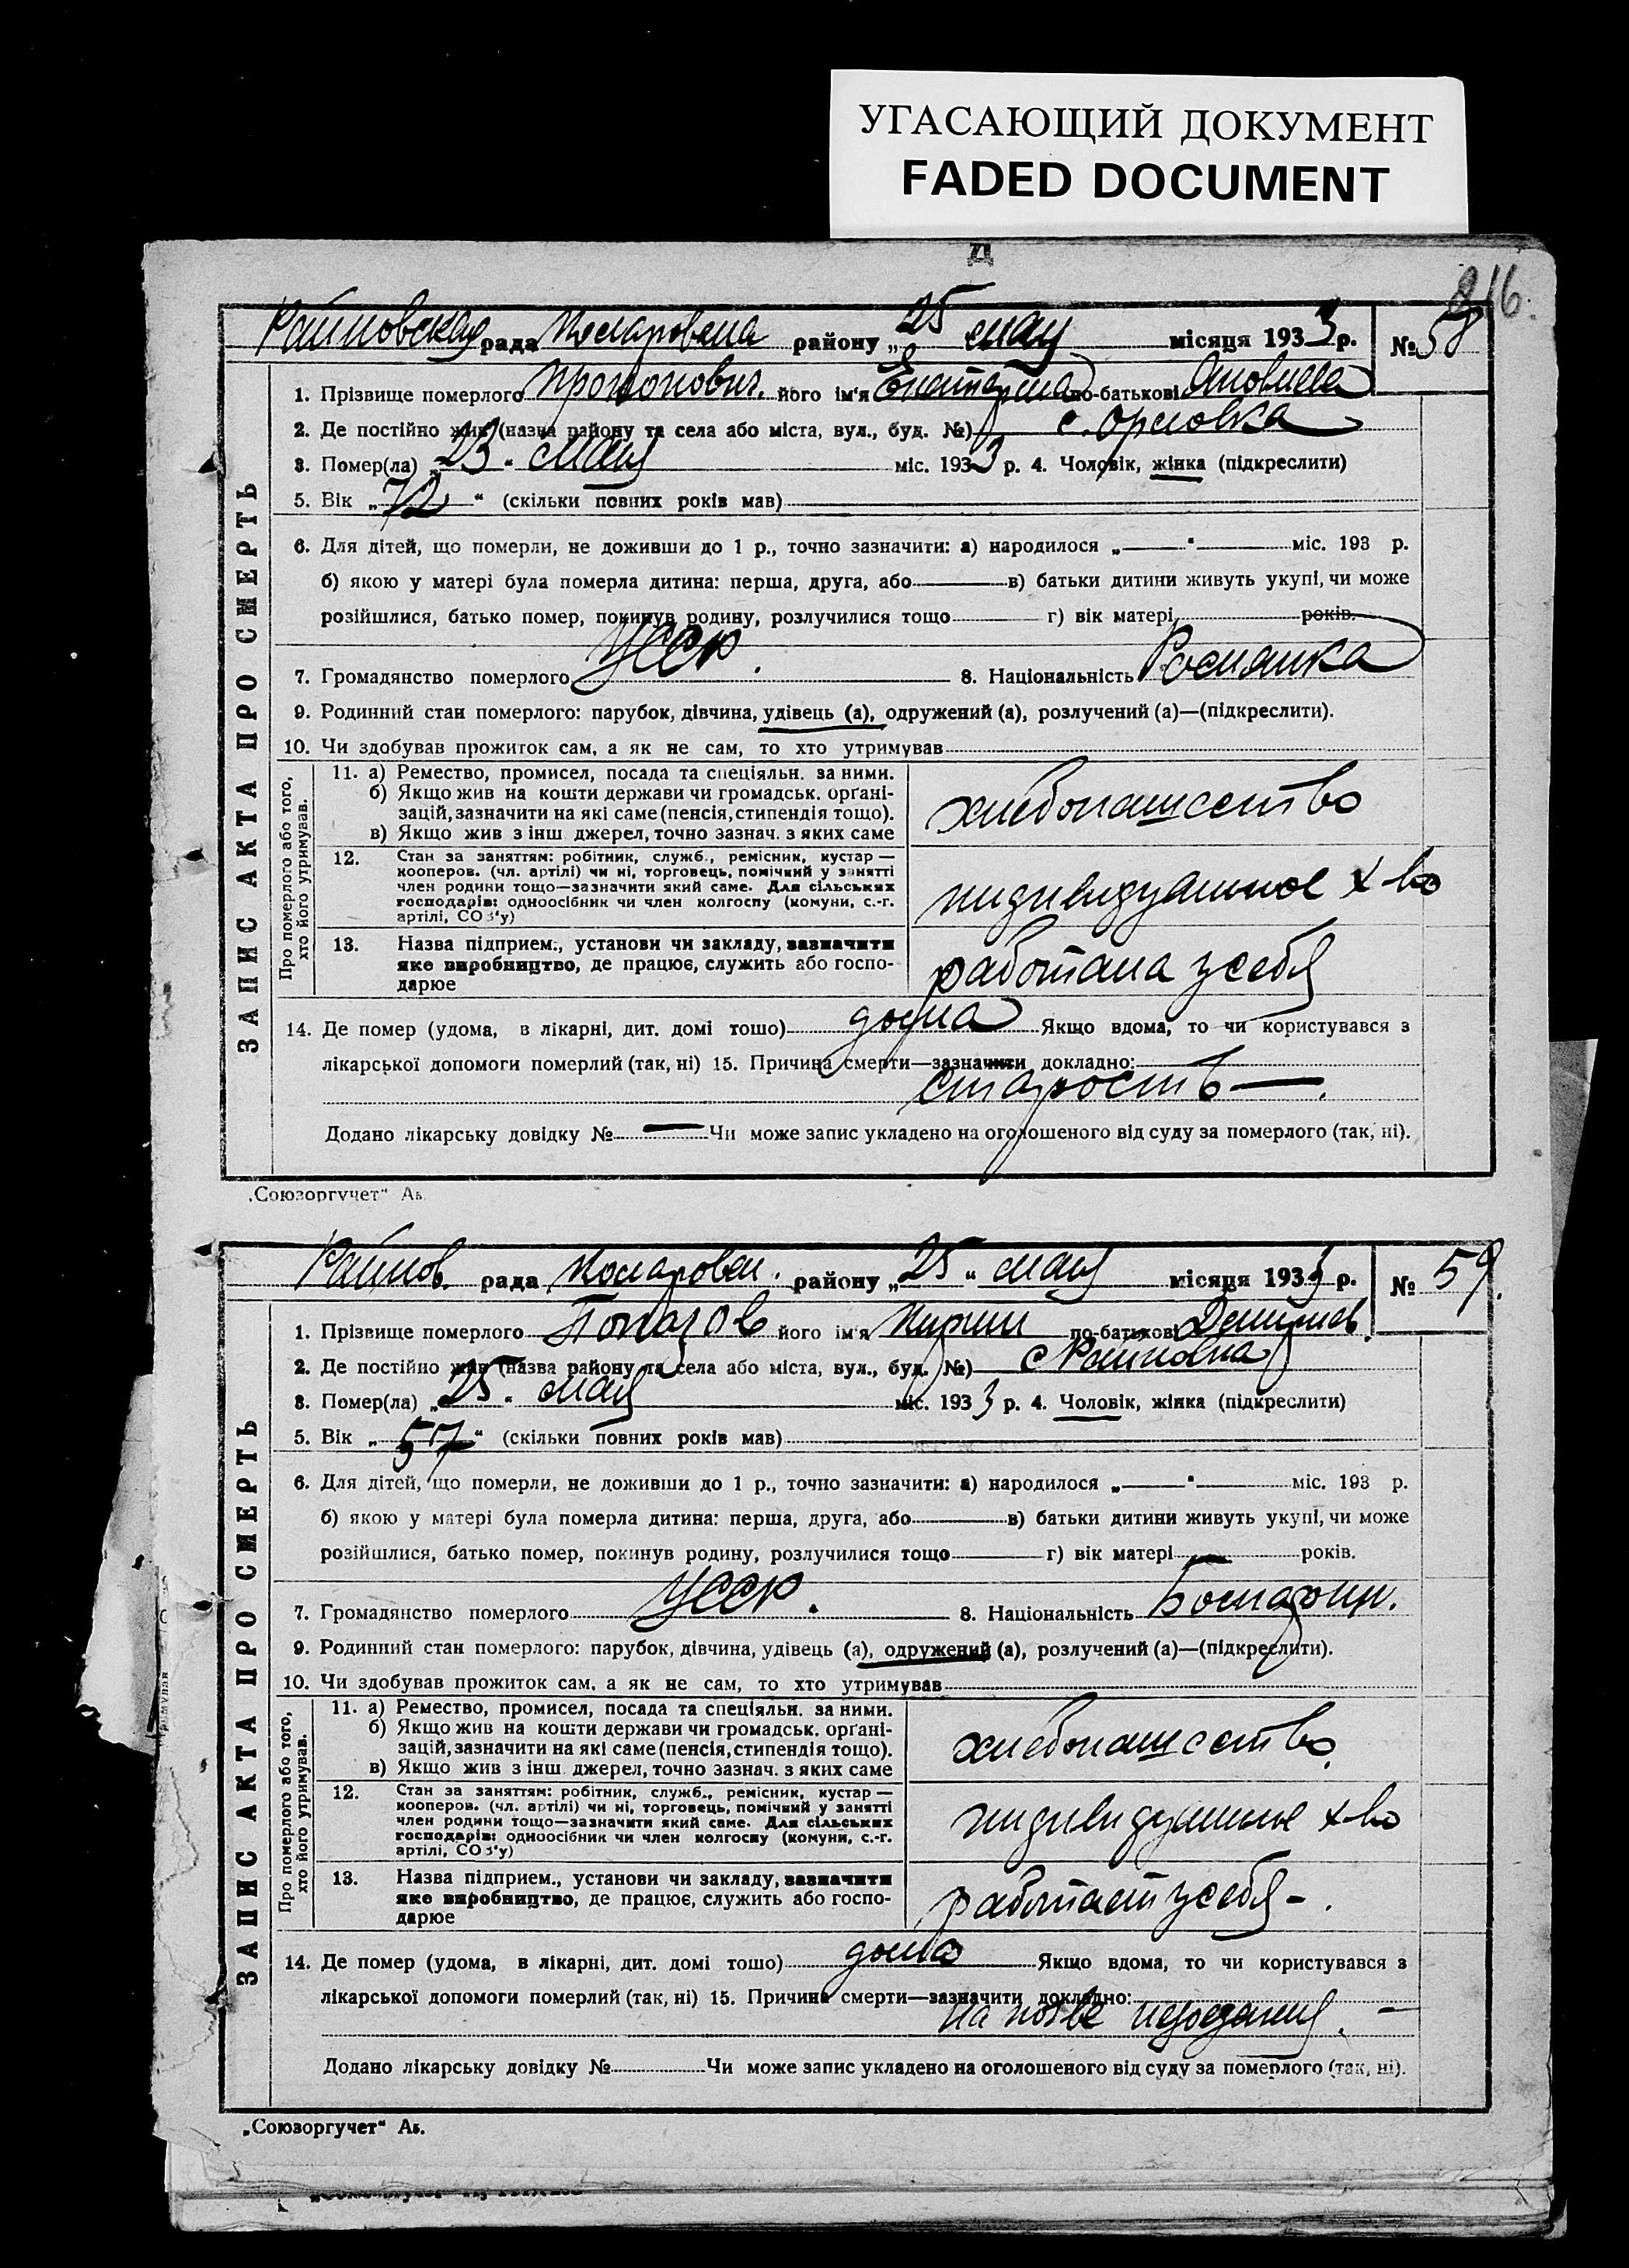 УГАСАЮЩИЙ ДОКУМЕНТ
FADED DOCUMENT
Д
216.
Райновская рада Коларовска району „25 мая місяця 1933 р. № 58
1. Прізвище померлого Прокопович. його ім'я Екатерина по-батькові Яковлева
2. Де постійно жив (назва району та села або міста, вул., буд. №) с. Орловка
3. Помер(ла) „23" мая міс. 1933 р. 4. Чоловік, жінка (підкреслити)
5. Вік „72" (скільки повних років мав)
6. Для дітей, що померли, не доживши до 1 р., точно зазначити: а) народилося „—"— міс. 193 р.
б) якою у матері була померла дитина: перша, друга, або — в) батьки дитини живуть укупі, чи може
розійшлися, батько помер, покинув родину, розлучилися тощо — г) вік матері років.
7. Громадянство померлого УССР. 8. Національність Россиянка
9. Родинний стан померлого: парубок, дівчина, удівець (а), одружений (а), розлучений (а)—(підкреслити).
10. Чи здобував прожиток сам, а як не сам, то хто утримував
ЗАПИС АКТА ПРО СМЕРТЬ
Про померлого або того, хто його утримував.
11. а) Ремество, промисел, посада та спеціяльн. за ними.
б) Якщо жив на кошти держави чи громадськ. органі-
зацій, зазначити на які саме (пенсія, стипендія тощо).
в) Якщо жив з інш. джерел, точно зазнач. з яких саме
хлебопашество
12. Стан за заняттям: робітник, служб., ремісник, кустар —
кооперов. (чл. артілі) чи ні, торговець, помічний у занятті
член родини тощо—зазначити який саме. Для сільських
господарів: одноосібник чи член колгоспу (комуни, с.-г.
артілі, СОЗ'у)
индивидуальное х-во
13. Назва підприєм., установи чи закладу, зазначити
яке виробництво, де працює, служить або госпо-
дарює
работала у себя
14. Де помер (удома, в лікарні, дит. домі тощо) дома Якщо вдома, то чи користувався з
лікарської допомоги померлий (так, ні) 15. Причина смерти—зазначити докладно:
старость —.
Додано лікарську довідку № — Чи може запис укладено на оголошеного від суду за померлого (так, ні).
„Союзоргучет" Аб.
Райнов. рада Коларовск. району „25" мая місяця 1933 р. № 59.
1. Прізвище померлого його ім'я Кирил по-батькові
2. Де постійно жив (назва району та села або міста, вул., буд. №) с Райновка
3. Помер(ла) „25" мая міс. 1933 р. 4. Чоловік, жінка (підкреслити)
5. Вік „57" (скільки повних років мав)
6. Для дітей, що померли, не доживши до 1 р., точно зазначити: а) народилося „—"— міс. 193 р.
б) якою у матері була померла дитина: перша, друга, або — в) батьки дитини живуть укупі, чи може
розійшлися, батько помер, покинув родину, розлучилися тощо — г) вік матері — років.
7. Громадянство померлого УССР. 8. Національність Болгарин.
9. Родинний стан померлого: парубок, дівчина, удівець (а), одружений (а), розлучений (а)—(підкреслити).
10. Чи здобував прожиток сам, а як не сам, то хто утримував
ЗАПИС АКТА ПРО СМЕРТЬ
Про померлого або того, хто його утримував.
11. а) Ремество, промисел, посада та спеціяльн. за ними.
б) Якщо жив на кошти держави чи громадськ. органі-
зацій, зазначити на які саме (пенсія, стипендія тощо).
в) Якщо жив з інш. джерел, точно зазнач. з яких саме
хлебопашество
12. Стан за заняттям: робітник, служб., ремісник, кустар —
кооперов. (чл. артілі) чи ні, торговець, помічний у занятті
член родини тощо—зазначити який саме. Для сільських
господарів: одноосібник чи член колгоспу (комуни, с.-г.
артілі, СОЗ'у)
индивидуальное х-во
13. Назва підприєм., установи чи закладу, зазначити
яке виробництво, де працює, служить або госпо-
дарює
работает у себя -.
14. Де помер (удома, в лікарні, дит. домі тощо) дома Якщо вдома, то чи користувався з
лікарської допомоги померлий (так, ні) 15. Причина смерти—зазначити докладно:
на почве недоедания. —
Додано лікарську довідку № Чи може запис укладено на оголошеного від суду за померлого (так, ні).
„Союзоргучет" Аб.